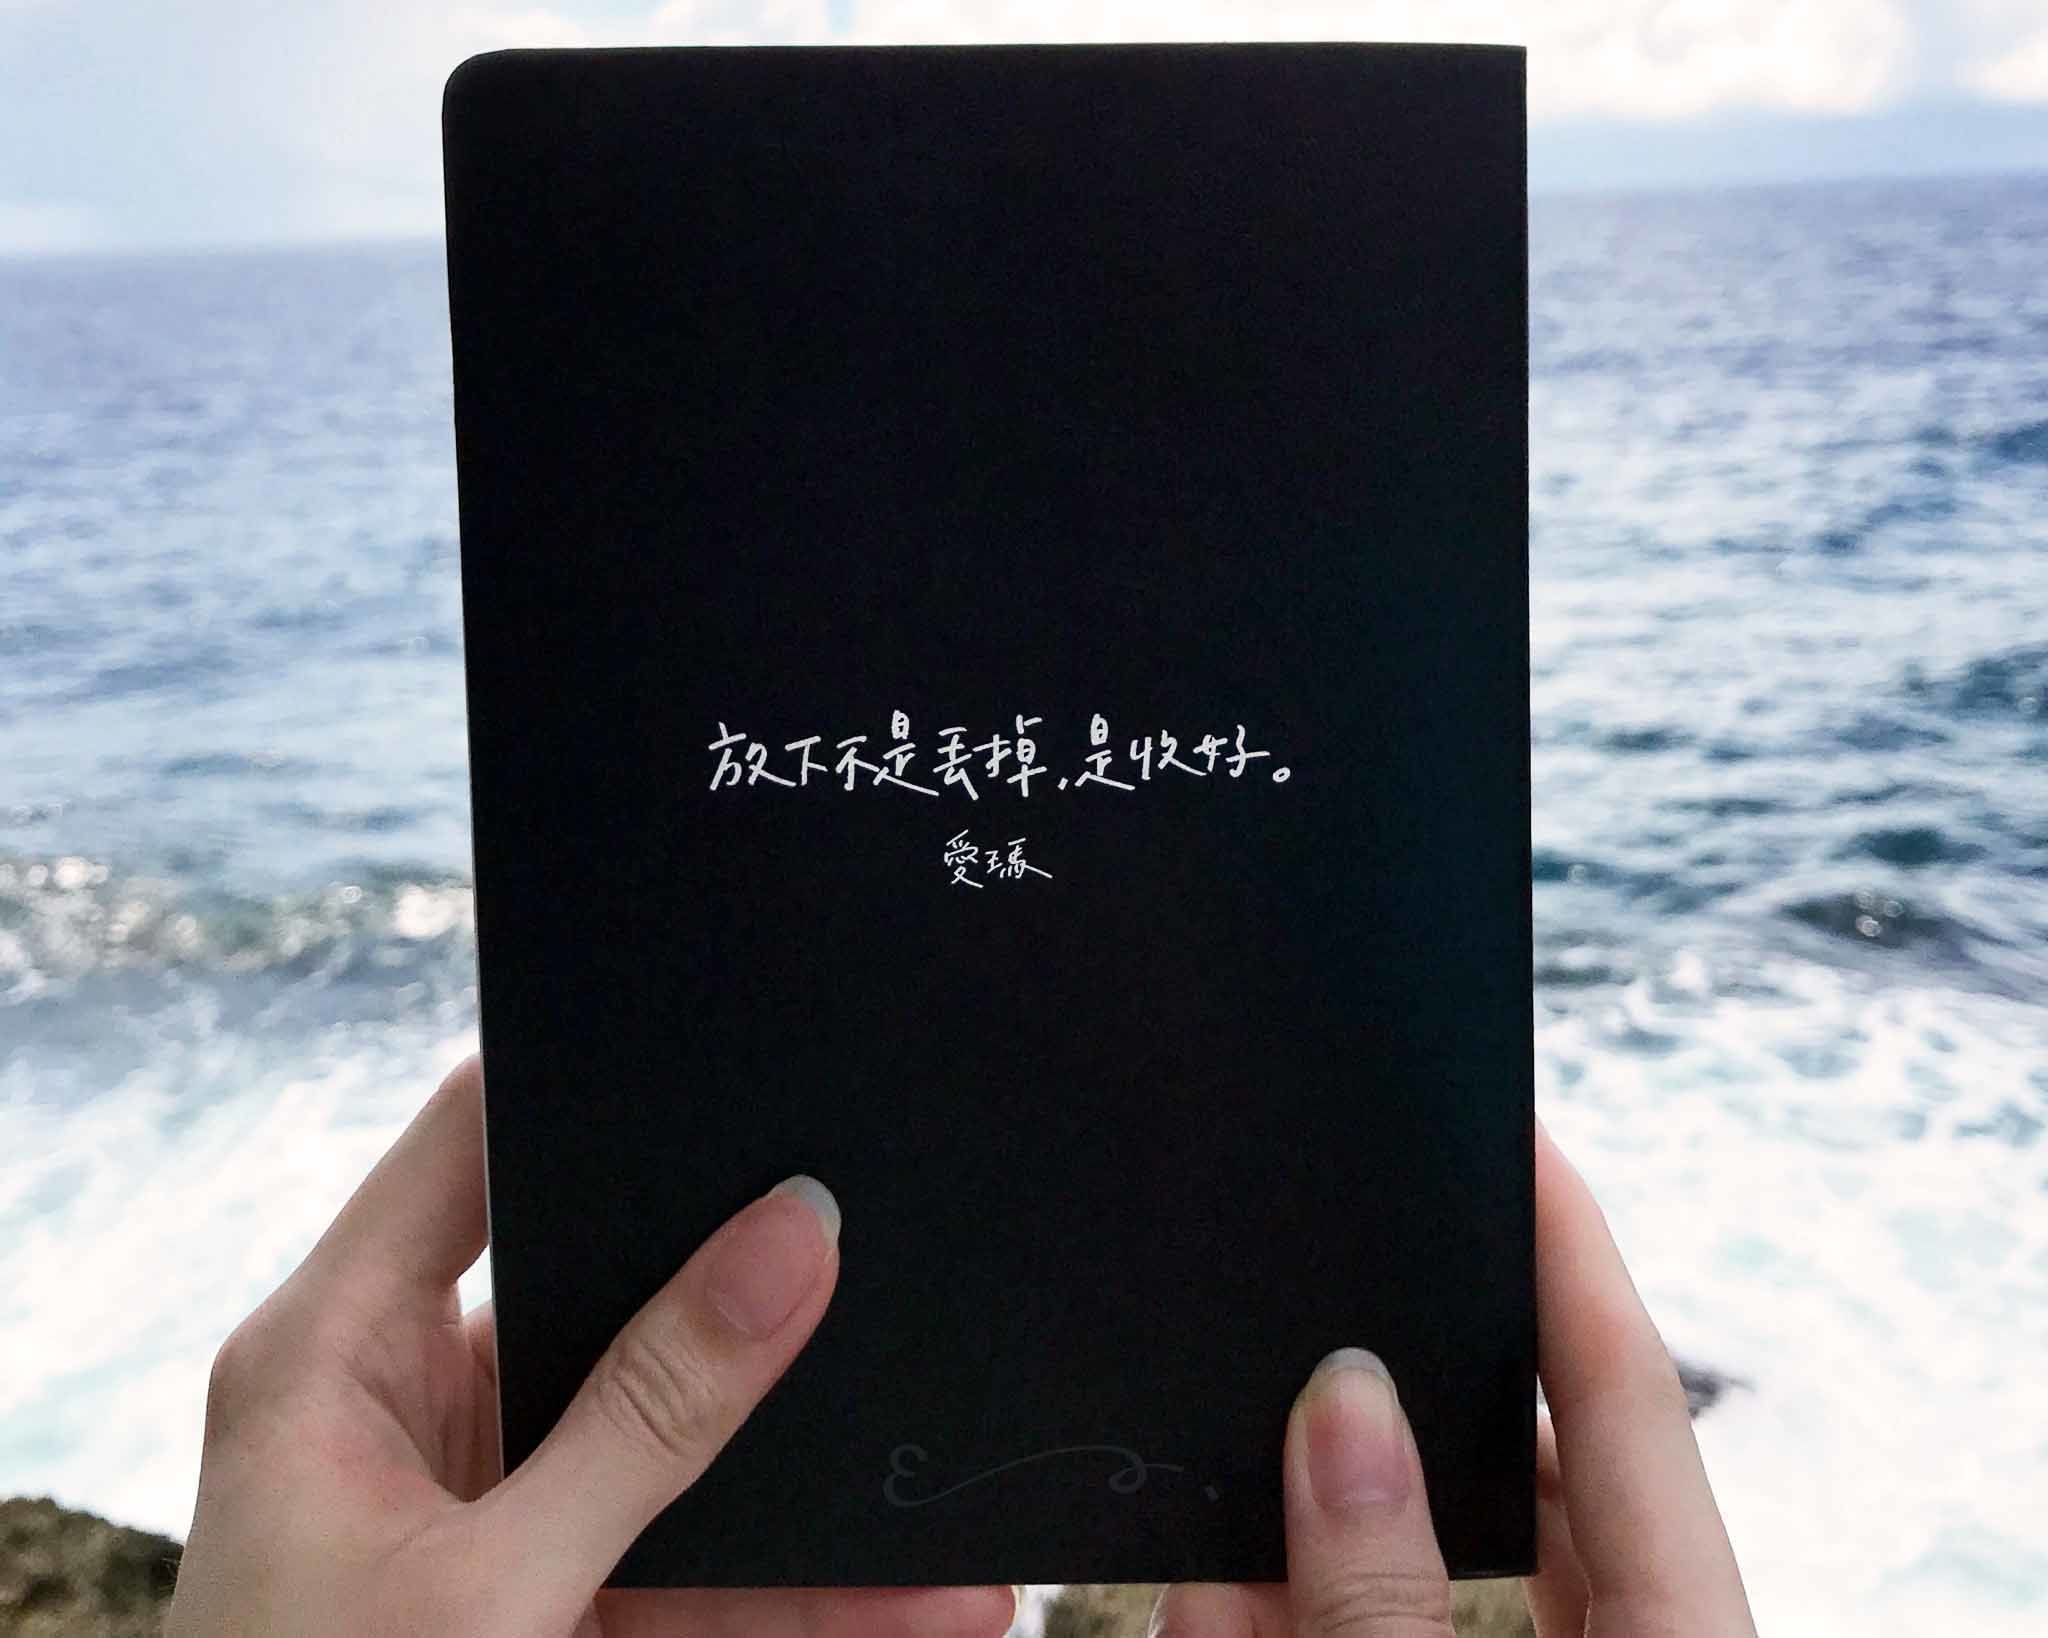 放下不是丟掉，是收好。
愛瑪